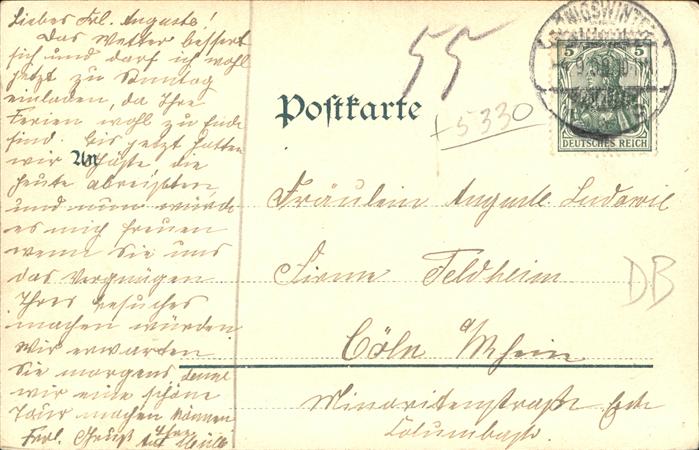 Liebes Frl. Auguste!
Das Wetter bessert
sich und darf ich wohl
jetzt zu Sonntag
einladen, da Ihre
Ferien wohl zu Ende
sind. bis jetzt hatten
wir Gäste die
heute abreisten,
und nun würde
es mich freuen
wenn Sie uns
das Vergnügen
Ihres besuches
machen würden
Wir erwarten
Sie morgens, denn
wir eine schöne
Tour machen können
Frdl. Gruß Ihre
55
Postkarte
5330
An
KÖNIGSWINTER
5 5
DEUTSCHES REICH
Fräulein Auguste Ludowici
Firma Feldheim
DB
Cöln a/Rhein
Minoritenstraße Ecke
Columbastr.